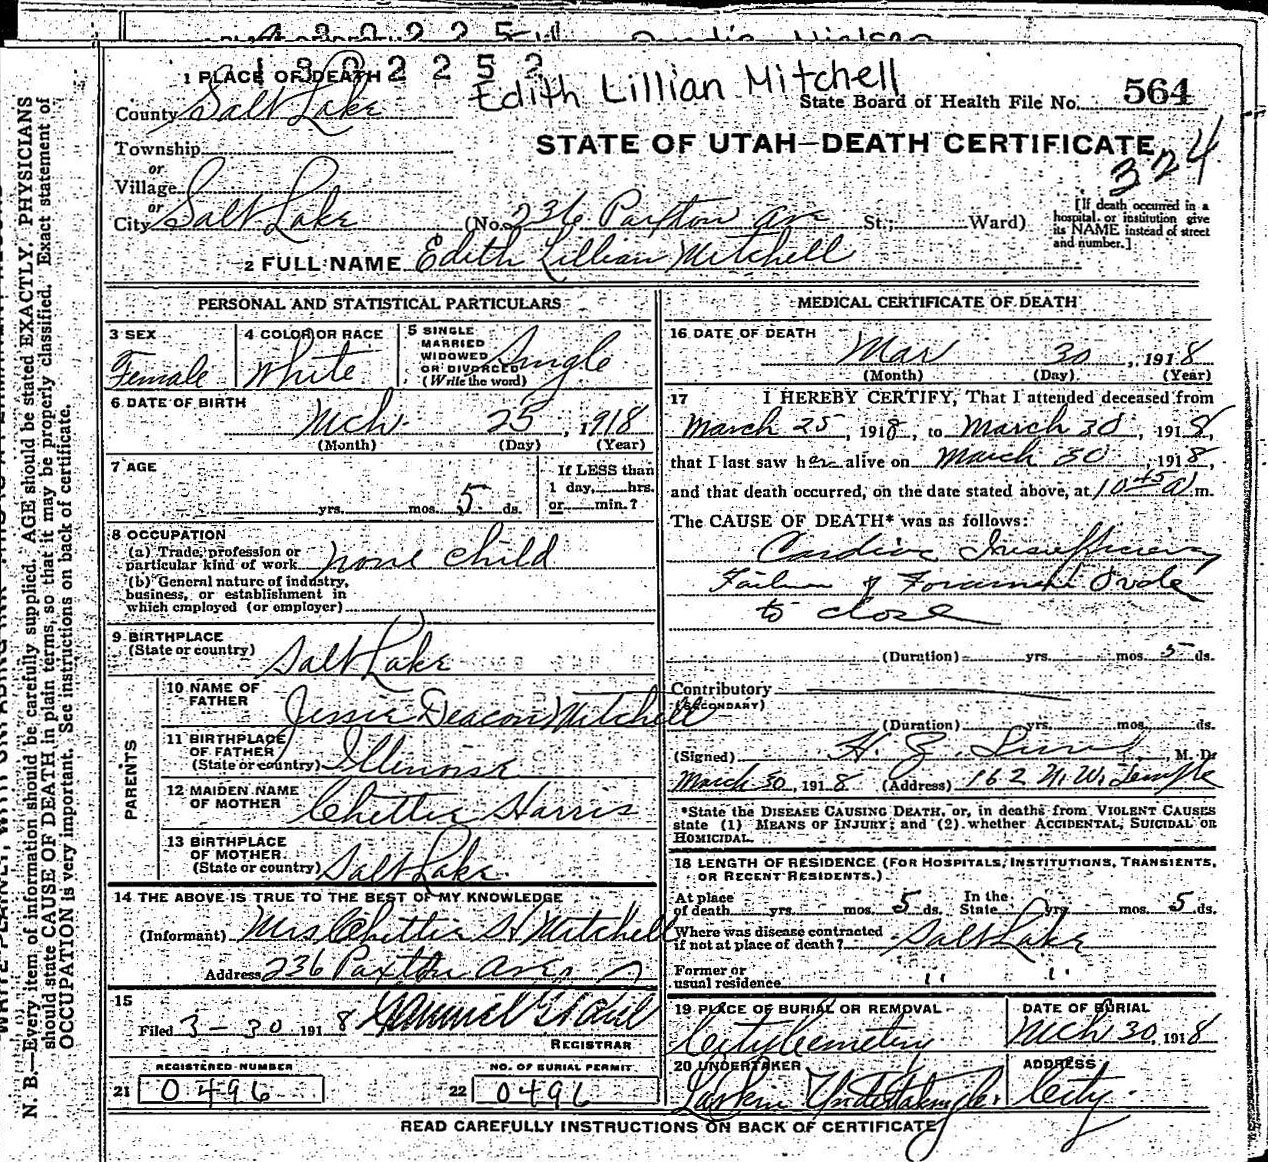 1302252
Edith Lillian Mitchell
1 PLACE OF DEATH
County Salt Lake
State Board of Health File No. 564
Township
STATE OF UTAH—DEATH CERTIFICATE
324
or
Village
or
City Salt Lake (No. 236 Paxton Ave St.; Ward)
[If death occurred in a hospital or institution give its NAME instead of street and number.]
2 FULL NAME Edith Lillian Mitchell
PERSONAL AND STATISTICAL PARTICULARS
3 SEX Female
4 COLOR OR RACE White
5 SINGLE MARRIED WIDOWED OR DIVORCED (Write the word) Single
6 DATE OF BIRTH
Mch. 25, 1918
(Month) (Day) (Year)
7 AGE
yrs. mos. 5 ds.
If LESS than 1 day, hrs. or min.?
8 OCCUPATION
(a) Trade, profession or particular kind of work none child
(b) General nature of industry, business, or establishment in which employed (or employer)
9 BIRTHPLACE
(State or country) Salt Lake
PARENTS
10 NAME OF FATHER Jessie Deacon Mitchell
11 BIRTHPLACE OF FATHER (State or country) Illinois
12 MAIDEN NAME OF MOTHER Chettie Harris
13 BIRTHPLACE OF MOTHER (State or country) Salt Lake
14 THE ABOVE IS TRUE TO THE BEST OF MY KNOWLEDGE
(Informant) Mrs Chettie H Mitchell
Address 236 Paxton Ave
15
Filed 3-30 1918
REGISTRAR
REGISTERED NUMBER
21 0496
NO. OF BURIAL PERMIT
22 0496
MEDICAL CERTIFICATE OF DEATH
16 DATE OF DEATH
Mar 30, 1918
(Month) (Day) (Year)
17 I HEREBY CERTIFY, That I attended deceased from
March 25, 1918, to March 30, 1918,
that I last saw her alive on March 30, 1918,
and that death occurred, on the date stated above, at 10 45 a m.
The CAUSE OF DEATH* was as follows:
Cardiac Insufficiency
Failure of Foramen Ovale
to close
(Duration) yrs. mos. 5 ds.
Contributory
(SECONDARY)
(Duration) yrs. mos. ds.
(Signed) H. Z. Lund, M. D.
March 30, 1918 (Address) 162 N. W. Temple
*State the DISEASE CAUSING DEATH, or, in deaths from VIOLENT CAUSES
state (1) MEANS OF INJURY; and (2) whether ACCIDENTAL, SUICIDAL OR
HOMICIDAL.
18 LENGTH OF RESIDENCE (FOR HOSPITALS, INSTITUTIONS, TRANSIENTS,
OR RECENT RESIDENTS.)
At place of death yrs. mos. 5 ds. In the State yrs. mos. 5 ds.
Where was disease contracted if not at place of death? Salt Lake
Former or usual residence " "
19 PLACE OF BURIAL OR REMOVAL
City Cemetery
DATE OF BURIAL
Mch 30, 1918
20 UNDERTAKER
Larkin Undertaking
ADDRESS
City
READ CAREFULLY INSTRUCTIONS ON BACK OF CERTIFICATE
N. B.—Every item of information should be carefully supplied. AGE should be stated EXACTLY. PHYSICIANS
should state CAUSE OF DEATH in plain terms, so that it may be properly classified. Exact statement of
OCCUPATION is very important. See instructions on back of certificate.